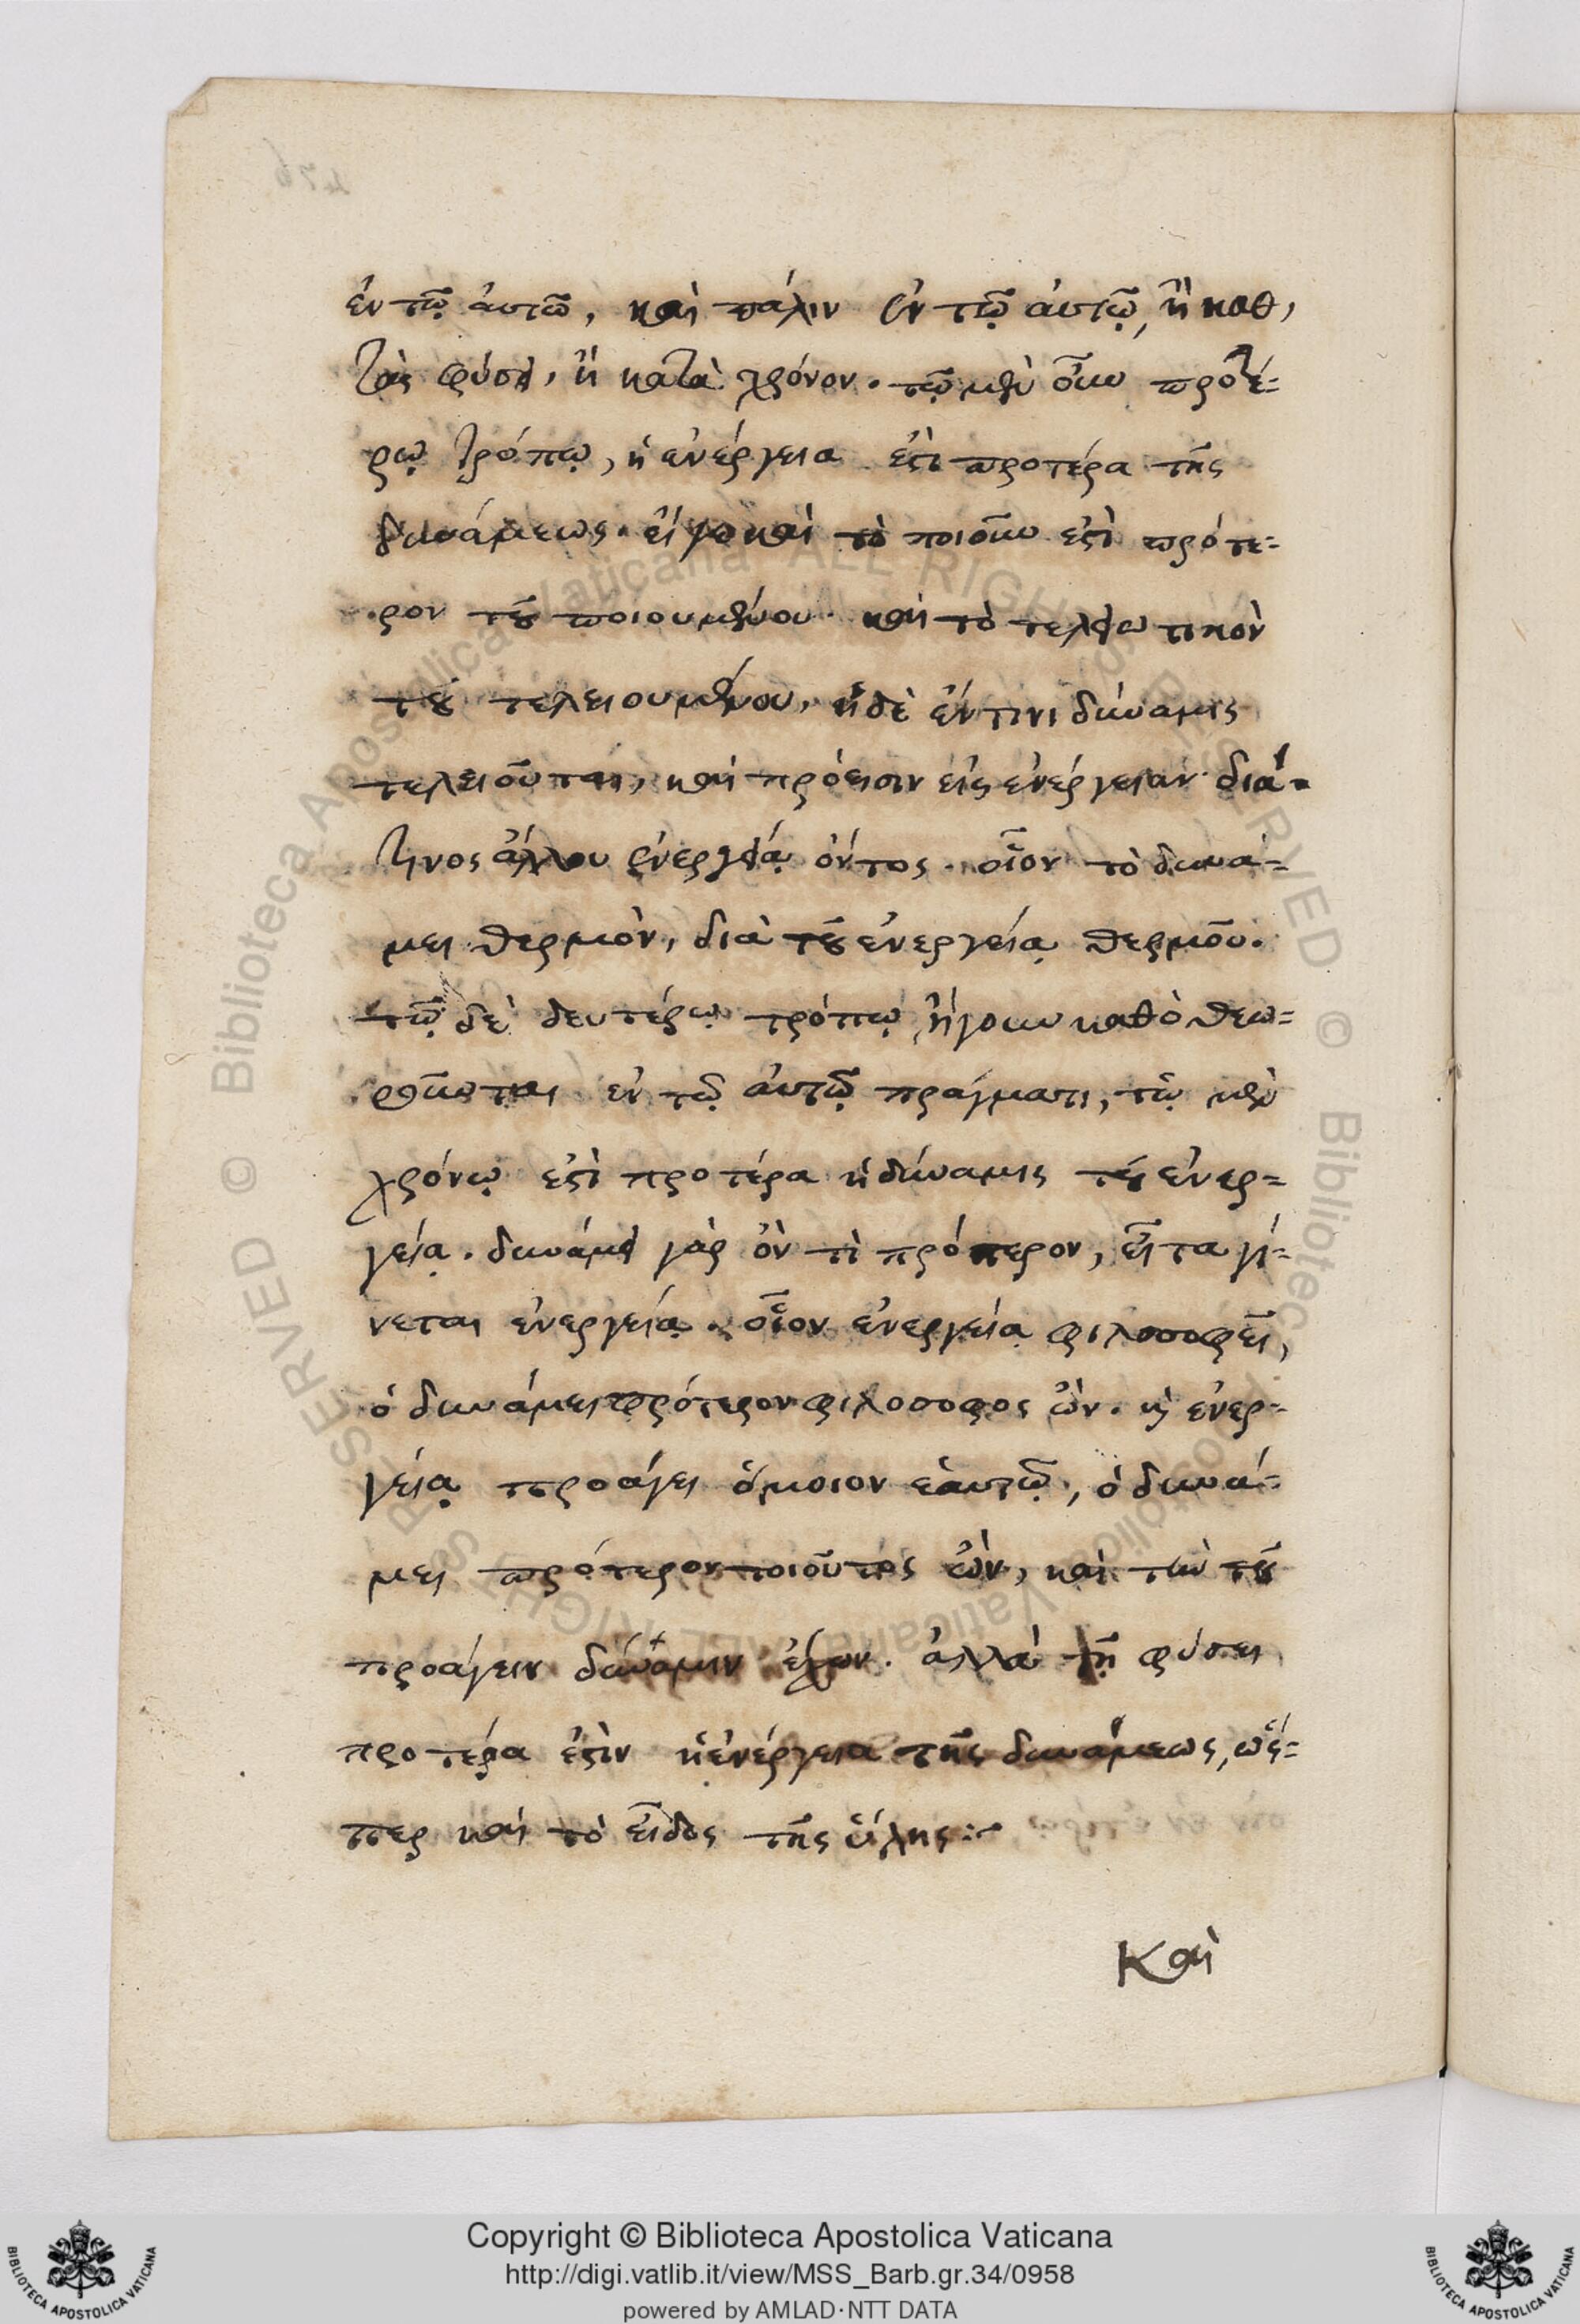 ἐν τῷ αὐτῷ, καὶ πάλιν ἐν τῷ αὐτῷ, ἢ καθ,
τὰς φύσει, ἢ κατὰ χρόνον. τῷ μὲν οὖν προτέ=
ρῳ τρόπῳ, ἡ ἐνέργεια ἐστὶ προτέρα τῆς
δυνάμεως. εἴγε καὶ τὸ ποιοῦν ἐστὶ πρότε=
ρον τοῦ ποιουμένου. καὶ τὸ τελειωτικὸν
τοῦ τελειουμένου, ἡ δὲ ἔν τινι δύναμις
τελειοῦται, καὶ πρόεισιν εἰς ἐνέργειαν διά=
τινος ἄλλου ἐνεργείᾳ ὄντος. οἷον τὸ δυνά=
μει θερμὸν, διὰ τοῦ ἐνεργείᾳ θερμοῦ.
τῷ δὲ δευτέρῳ τρόπῳ, ἤγουν καθὸ θεω=
ροῦνται ἐν τῷ αὐτῷ πράγματι, τῷ μὲν
χρόνῳ ἐστὶ προτέρα ἡ δύναμις τοῦ ἐνερ=
γείᾳ. δυνάμει γὰρ ὂν τὶ πρότερον, εἶτα γί=
νεται ἐνεργείᾳ. οἷον ἐνεργείᾳ φιλοσοφεῖ,
ὁ δυνάμει πρότερον φιλοσοφος ὢν. καὶ ἐνερ=
γείᾳ προάγει ὅμοιον ἑαυτῷ, ὁ δυνά=
μει πρότερον τοιοῦτος ὢν, καὶ τὴν τοῦ
προάγειν δύναμιν ἔχων. ἀλλὰ τῇ φύσει
προτέρα ἐστὶν ἡ ἐνέργεια τῆς δυνάμεως, ὥς=
περ καὶ τὸ εἶδος τῆς ὕλης:~
Καὶ
Copyright © Biblioteca Apostolica Vaticana
http://digi.vatlib.it/view/MSS_Barb.gr.34/0958
powered by AMLAD·NTT DATA